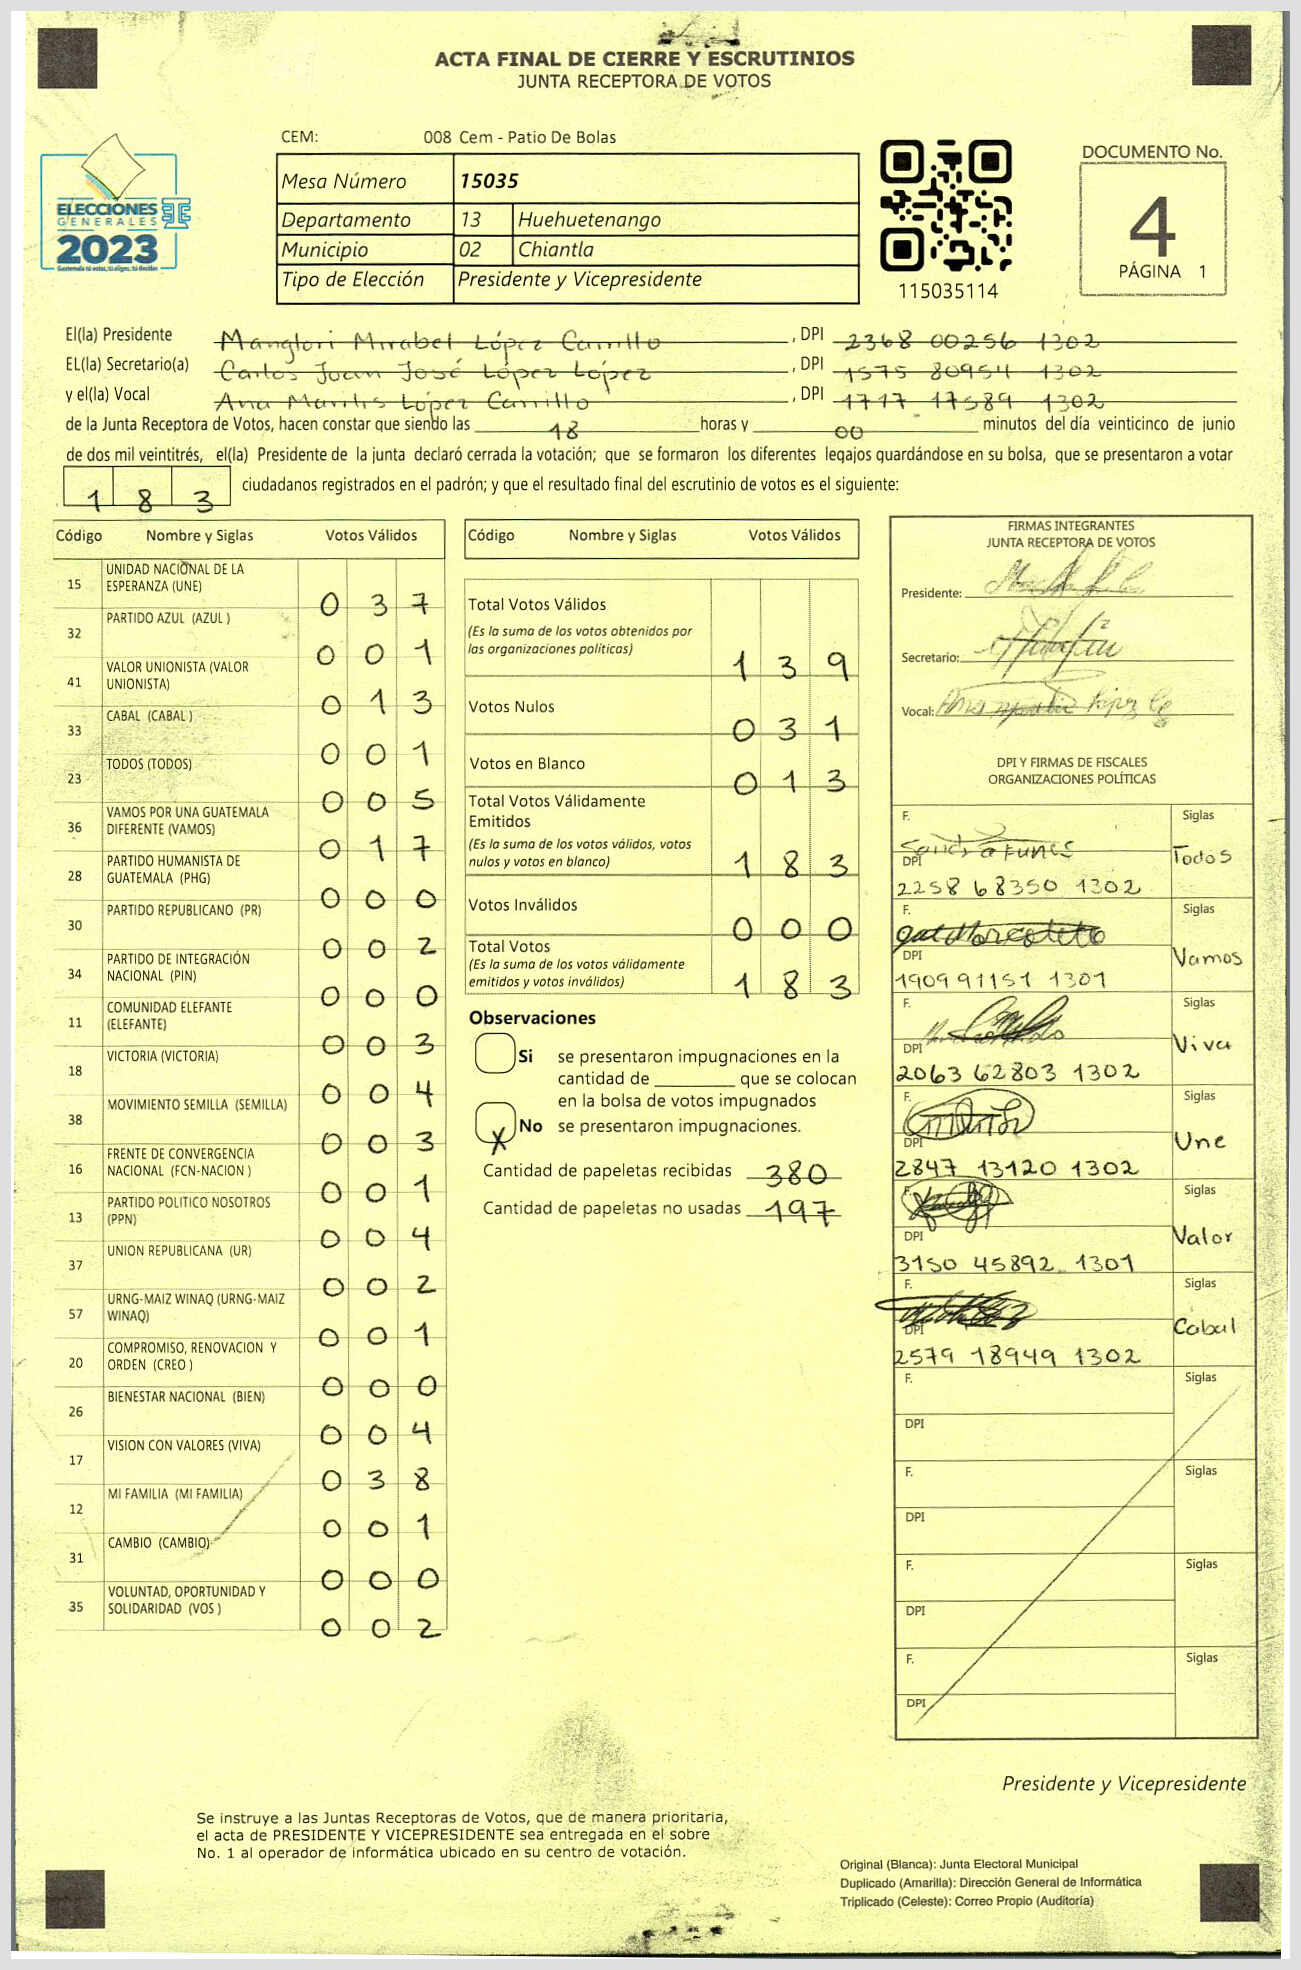 ACTA FINAL DE CIERRE Y ESCRUTINIOS
JUNTA RECEPTORA DE VOTOS
CEM: 008 Cem - Patio De Bolas
Mesa Número 15035
Departamento 13 Huehuetenango
Municipio 02 Chiantla
Tipo de Elección Presidente y Vicepresidente
ELECCIONES
GENERALES
2023
Guatemala tú votas, tú eliges, tú decides
115035114
DOCUMENTO No.
4
PÁGINA 1
El(la) Presidente Manglori Mirabel López Carrillo, DPI 2368 00256 1302
EL(la) Secretario(a) Carlos Juan José López López, DPI 1575 80954 1302
y el(la) Vocal Ana Marilis López Carrillo, DPI 1717 17589 1302
de la Junta Receptora de Votos, hacen constar que siendo las 18 horas y 00 minutos del día veinticinco de junio
de dos mil veintitrés, el(la) Presidente de la junta declaró cerrada la votación; que se formaron los diferentes legajos quardándose en su bolsa, que se presentaron a votar
1 8 3 ciudadanos registrados en el padrón; y que el resultado final del escrutinio de votos es el siguiente:
Código Nombre y Siglas Votos Válidos
15 UNIDAD NACIONAL DE LA
ESPERANZA (UNE) 0 3 7
32 PARTIDO AZUL (AZUL ) 0 0 1
41 VALOR UNIONISTA (VALOR
UNIONISTA) 0 1 3
33 CABAL (CABAL ) 0 0 1
23 TODOS (TODOS) 0 0 5
36 VAMOS POR UNA GUATEMALA
DIFERENTE (VAMOS) 0 1 7
28 PARTIDO HUMANISTA DE
GUATEMALA (PHG) 0 0 0
30 PARTIDO REPUBLICANO (PR) 0 0 2
34 PARTIDO DE INTEGRACIÓN
NACIONAL (PIN) 0 0 0
11 COMUNIDAD ELEFANTE
(ELEFANTE) 0 0 3
18 VICTORIA (VICTORIA) 0 0 4
38 MOVIMIENTO SEMILLA (SEMILLA) 0 0 3
16 FRENTE DE CONVERGENCIA
NACIONAL (FCN-NACION ) 0 0 1
13 PARTIDO POLITICO NOSOTROS
(PPN) 0 0 4
37 UNION REPUBLICANA (UR) 0 0 2
57 URNG-MAIZ WINAQ (URNG-MAIZ
WINAQ) 0 0 1
20 COMPROMISO, RENOVACION Y
ORDEN (CREO ) 0 0 0
26 BIENESTAR NACIONAL (BIEN) 0 0 4
17 VISION CON VALORES (VIVA) 0 3 8
12 MI FAMILIA (MI FAMILIA) 0 0 1
31 CAMBIO (CAMBIO) 0 0 0
35 VOLUNTAD, OPORTUNIDAD Y
SOLIDARIDAD (VOS ) 0 0 2
Código Nombre y Siglas Votos Válidos
Total Votos Válidos
(Es la suma de los votos obtenidos por
las organizaciones políticas) 1 3 9
Votos Nulos 0 3 1
Votos en Blanco 0 1 3
Total Votos Válidamente
Emitidos
(Es la suma de los votos válidos, votos
nulos y votos en blanco) 1 8 3
Votos Inválidos 0 0 0
Total Votos
(Es la suma de los votos válidamente
emitidos y votos inválidos) 1 8 3
Observaciones
Si se presentaron impugnaciones en la
cantidad de ________ que se colocan
en la bolsa de votos impugnados
X No se presentaron impugnaciones.
Cantidad de papeletas recibidas 380
Cantidad de papeletas no usadas 197
FIRMAS INTEGRANTES
JUNTA RECEPTORA DE VOTOS
Presidente:
Secretario:
Vocal:
DPI Y FIRMAS DE FISCALES
ORGANIZACIONES POLÍTICAS
F. Sandra Funes Siglas
DPI Todos
2258 68350 1302
F. Siglas
DPI Vamos
1909 91151 1301
F. Siglas
DPI Viva
2063 62803 1302
F. Siglas
DPI Une
2847 13120 1302
F. Siglas
DPI Valor
3150 45892 1301
F. Siglas
DPI Cabal
2579 18949 1302
F. Siglas
DPI
F. Siglas
DPI
F. Siglas
DPI
F. Siglas
DPI
Presidente y Vicepresidente
Se instruye a las Juntas Receptoras de Votos, que de manera prioritaria,
el acta de PRESIDENTE Y VICEPRESIDENTE sea entregada en el sobre
No. 1 al operador de informática ubicado en su centro de votación.
Original (Blanca): Junta Electoral Municipal
Duplicado (Amarilla): Dirección General de Informática
Triplicado (Celeste): Correo Propio (Auditoría)